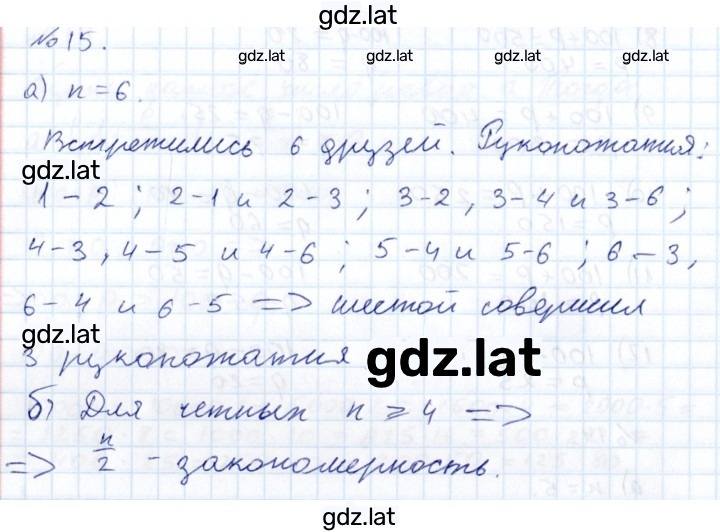 gdz.lat
№15.
gdz.lat gdz.lat
а) n=6.
Встретились 6 друзей. Рукопожатия:
gdz.lat
1-2; 2-1 и 2-3; 3-2, 3-4 и 3-6;
4-3, 4-5 и 4-6; 5-4 и 5-6; 6-3,
6-4 и 6-5 => шестой совершил
gdz.lat
3 рукопожатия
gdz.lat
б) Для четных n ⩾ 4 =>
=> n/2 - закономерность.
gdz.lat